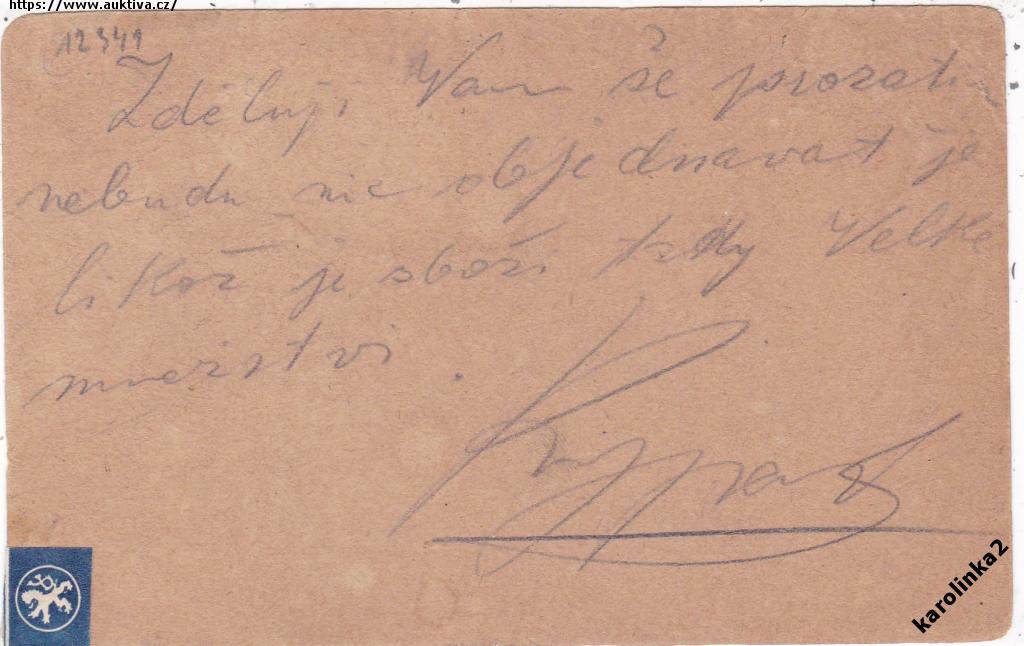 https://www.auktiva.cz/
12341
Zděluji Vam že prozatim
nebudu nic objednavat je
likož je sboži tady Velke
množstvi.
karolinka2